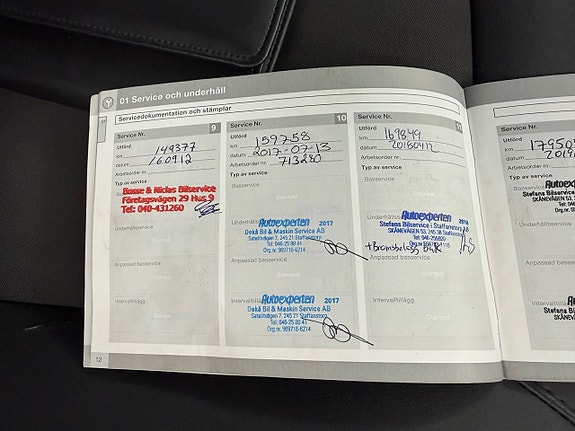 01 Service och underhåll
Servicedokumentation och stämplar
Service Nr. 9
Utförd
km 149377
datum 160912
Arbetsorder nr.
Typ av service
Basservice
Bosse & Niclas Bilservice
Företagsvägen 29 Hus 9
Tel: 040-431260
Underhållsservice
Anpassad basservice
Intervalltillägg
Service Nr. 10
Utförd
km 159758
datum 2017-07-13
Arbetsorder nr. 713280
Typ av service
Basservice
Underhållsservice
Autoexperten 2017
Dekå Bil & Maskin Service AB
Satellitvägen 7, 245 21 Staffanstorp
Tel: 046-25 80 41
Org.nr. 969718-6214
Anpassad basservice
Stämpel
Intervalltillägg
Autoexperten 2017
Dekå Bil & Maskin Service AB
Satellitvägen 7, 245 21 Staffanstorp
Tel: 046-25 80 41
Org.nr. 969718-6214
Service Nr. 11
Utförd
km 169849
datum 20180412
Arbetsorder nr.
Typ av service
Basservice
Underhållsservice
Autoexperten 2018
Stefans Bilservice i Staffanstorp AB
SKÅNEVÄGEN 53, 245 38 Staffanstorp
+ Bromsbelägg Bak
Anpassad basservice
Stämpel
Intervalltillägg
Autoexperten
Stefans Bilservice
SKÅNEVÄGEN 53
Autoexperten
Stefans Bilservice
SKÅNEVÄGEN
12